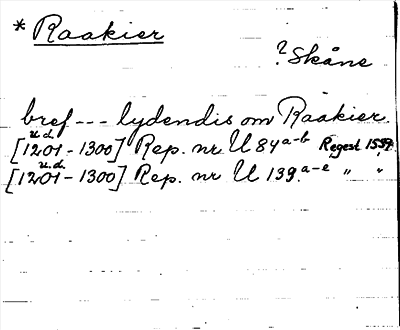 * Raakier
? Skåne
bref --- lydendis om Raakier.
u.d.
[1201-1300] Rep. nr U 84 a-b Regest 1554.
u.d.
[1201-1300] Rep. nr U 139. a-e " "